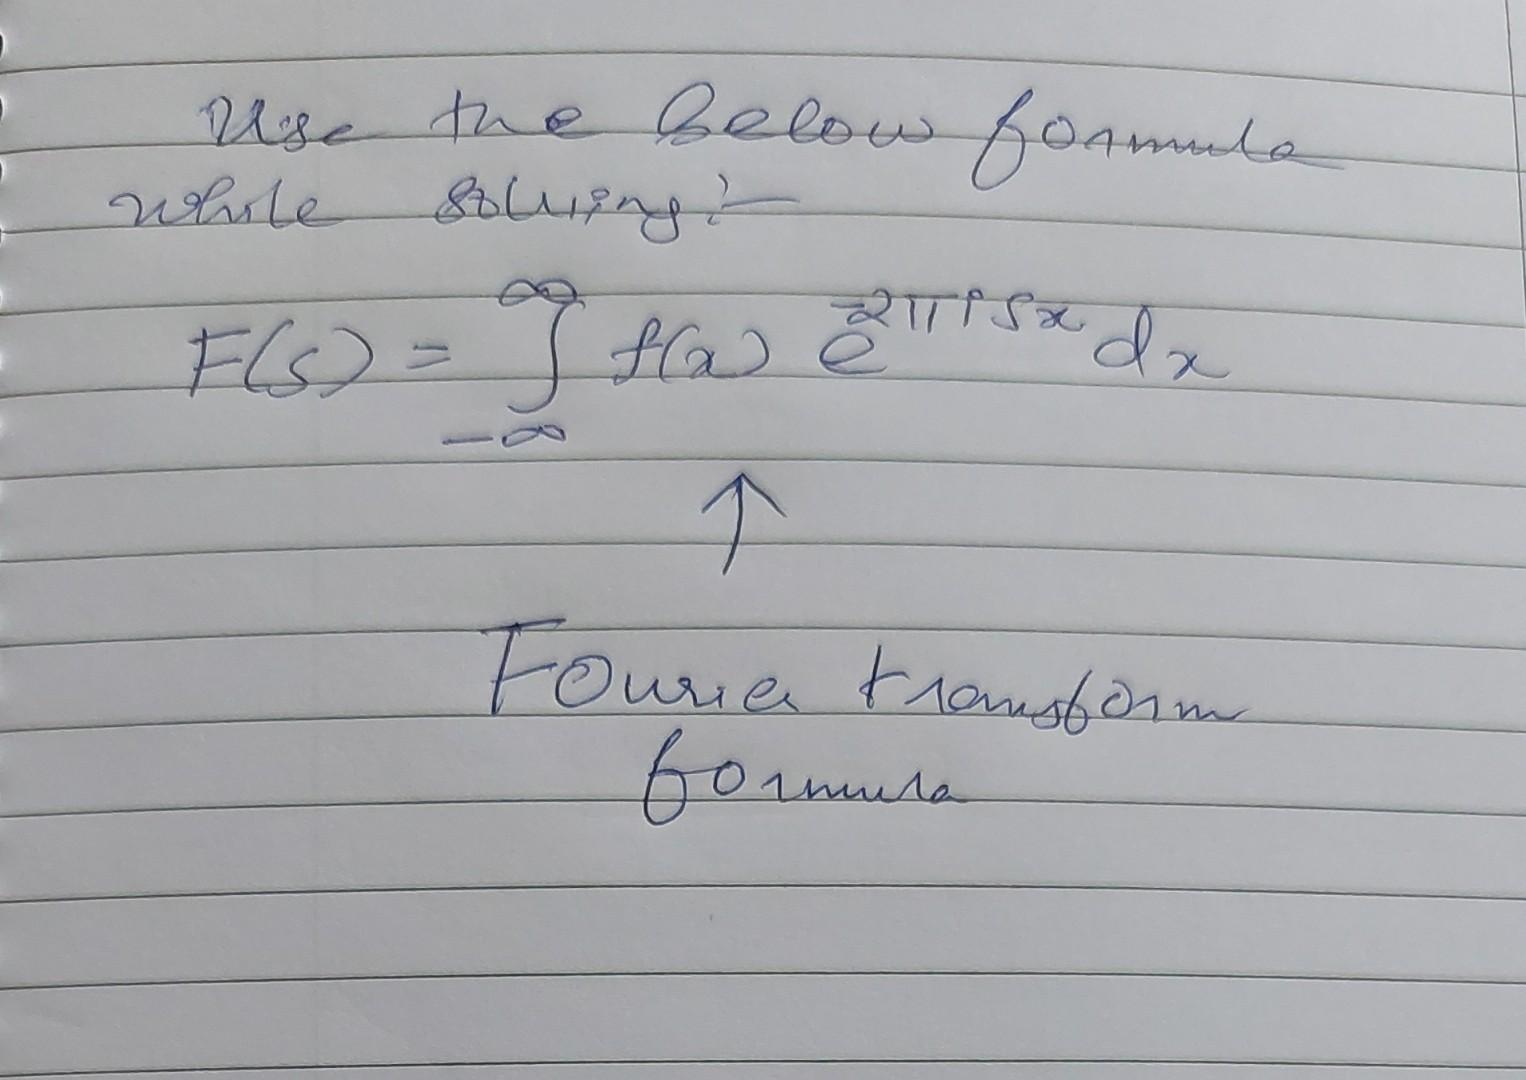 Use the Below formula
while solving:-
F(s) = ∫_{-∞}^{∞} f(x) e^{-2πisx} dx
↑
Fourier transform
formula